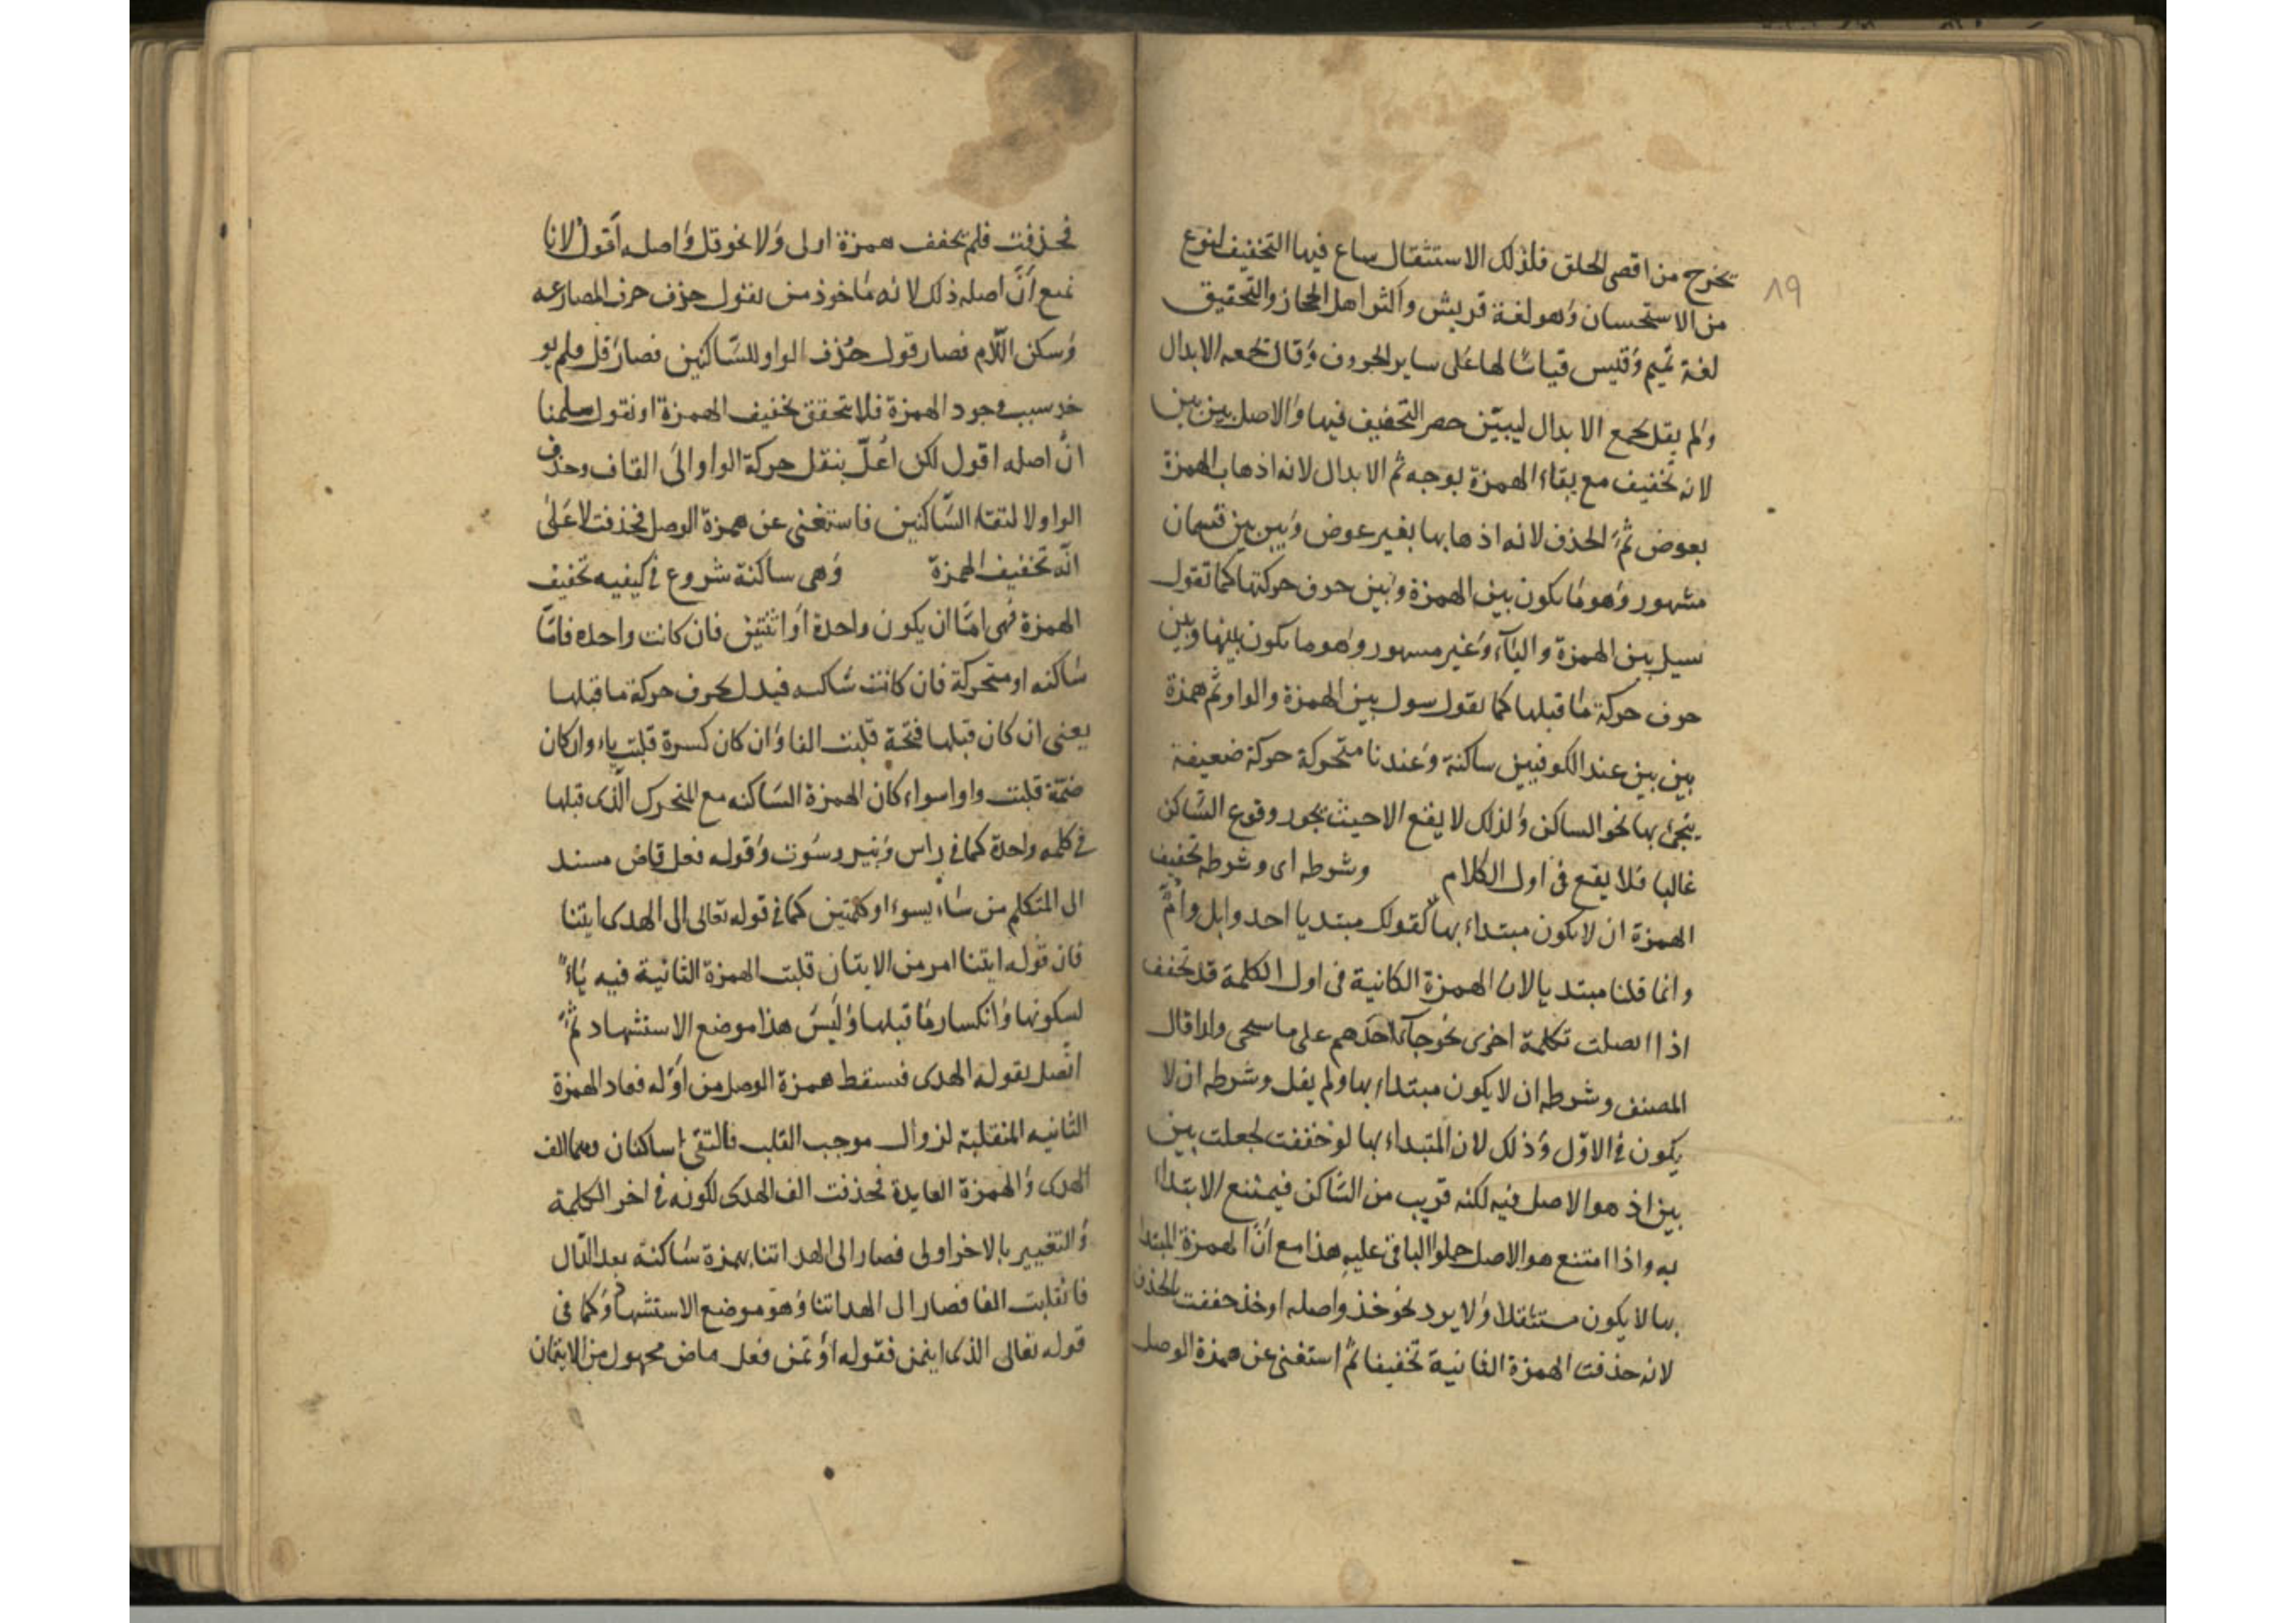 ٨٩
يخرج من اقصى الحلق فلذلك الاستثقال ساع فيها التخفيف لنوع
من الاستحسان وهو لغة قريش واكثر اهل الحجاز والتحقيق
لغة تميم وقيس قياسًا لها على ساير الحروف وقال تجمعه الابدال
ولم يقل تجمع الابدال ليبيّن حصر التخفيف فيها والاصل بين بين
لانه تخفيف مع بقاء الهمزة بوجه ثم الابدال لانه اذهاب الهمزة
بعوض ثمّ الحذف لانه اذهابها بغير عوض وبين بين قسمان
مشهور وهو ما يكون بين الهمزة وبين حرف حركتها كما تقول
سيل بين الهمزة والياء وغير مسهور وهو ما يكون بينها وبين
حرف حركة ما قبلها كما تقول سول بين الهمزة والواو ثم همزة
بين بين عند الكوفيين ساكنة وعندنا متحركة حركة ضعيفة
ينحى بها نحو الساكن ولذلك لا يقع الا حيث يجوز وقوع السّاكن
غالبا فلا يقع فى اول الكلام وشرطه اى وشرطه تخفيف
الهمزة ان لا يكون مبتداء بها كقولك مبتديا احد وابل وامّ
وانما قلنا مبتديا لان الهمزة الكائنية فى اول الكلمة قد تخفف
اذا اتصلت بكلمة اخرى نحو جآ احدهم على ما سيجى ولذا قال
المصنف وشرطه ان لا يكون مبتداء بها ولم يقل وشرطه ان لا
يكون فى الاوّل وذلك لان المبتداء بها لو خففت لجعلت بين
بين اذ هو الاصل فيه لكنه قريب من السّاكن فيمتنع الابتدا
به واذا امتنع هو الاصل حملوا الباقى عليه هذا مع انّ الهمزة المبتدا
بها لا يكون مستثقلا ولا يرد نحو خذ واصله اوخذ خففت بالحذف
لانه حذفت الهمزة الثانية تخفيفا ثم استغنى عن همزة الوصل
فحذفت فلم يخفف همزة اولى ولا نحو قل واصله أقول لانا
نمنع أنّ اصله ذلك لانه ماخوذ من يقول حذف حرف المضارعه
وسكن اللّام فصار قول حُذف الواو للسّاكنين فصار قل فلم يو
خد سبب وجود الهمزة فلا يتحقق تخفيف الهمزة او نقول سلمنا
انّ اصله اقول لكن اُعلّ بنقل حركة الواو الى القاف وحذف
الواو لالتقاء السّاكنين فاستغنى عن همزة الوصل فحذفت لا على
انّه تخفيف الهمزة وهى ساكنة شروع فى كيفيه تخفيف
الهمزة فهى امّا ان يكون واحدة أو اثنتين فان كانت واحده فامّا
ساكنه او متحركة فان كانت ساكنه فيبدل بحرف حركة ما قبلها
يعنى ان كان قبلها فتحة قلبت الفا وان كان كسرة قلبت ياء وان كان
ضمّة قلبت واوا سواء كان الهمزة السّاكنه مع المتحرك الّذى قبلها
فى كلمه واحدة كما فى راس وبير وسوت وقوله فعل قاض مسند
الى المتكلم من ساء يسوء او كلمتين كما فى قوله تعالى الى الهدى ايتنا
فان قوله ايتنا امر من الاتيان قلبت الهمزة الثانية فيه ياءً
لسكونها وانكسار ما قبلها وليس هذا موضع الاستشهاد ثمّ
اتّصل بقوله الهدى فسقط همزة الوصل من اوّله فعاد الهمزة
الثانيه المنقلبة لزوال موجب القلب فالتقى ساكنان وهما الف
الهدى والهمزة العايدة فحذفت الف الهدى لكونه فى اخر الكلمة
والتغيير بالاخر اولى فصار الى الهدأتنا بهمزة ساكنة بعد الدّال
فانقلبت الفا فصار الى الهداتنا وهو موضع الاستشهاد وكما فى
قوله تعالى الذى ايتمن فقوله اؤتمن فعل ماض مجهول من الايتمان